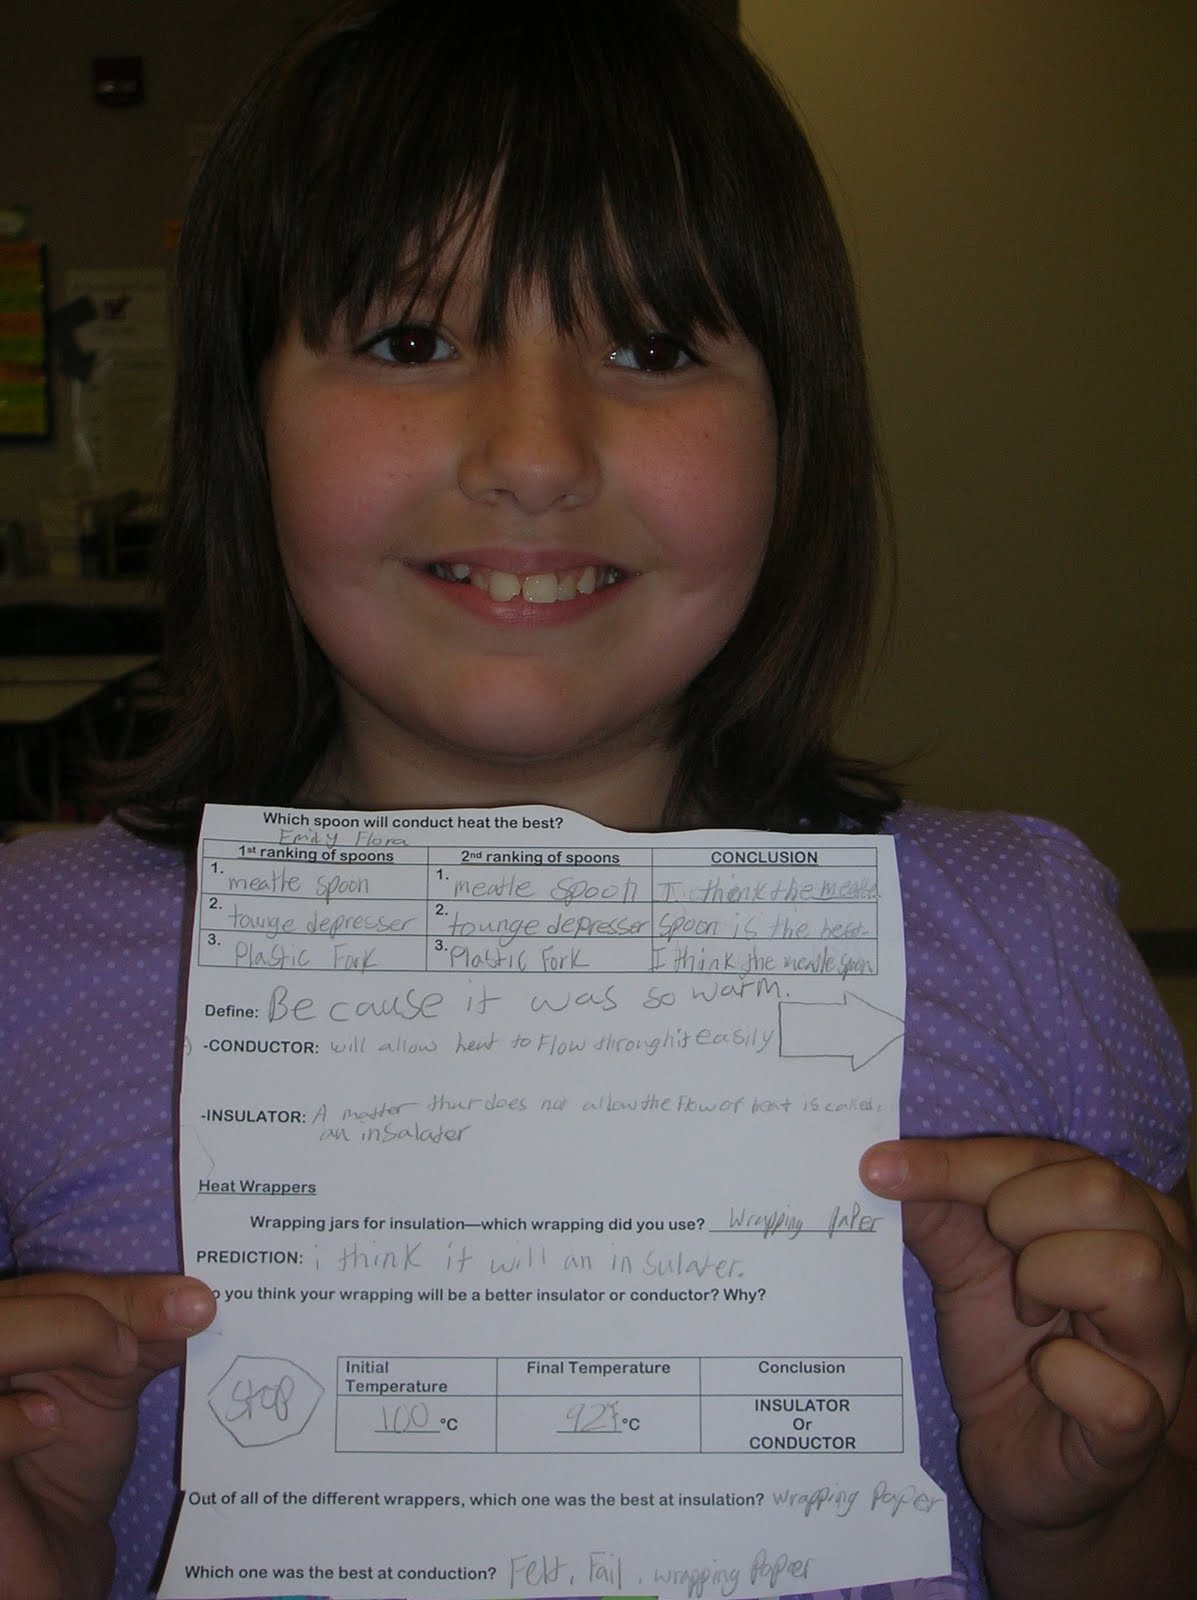 Which spoon will conduct heat the best?
Emily Flora
1st ranking of spoons 2nd ranking of spoons CONCLUSION
1. meatle spoon 1. meatle spoon I think the meatle
2. tounge depresser 2. tounge depresser spoon is the best.
3. Plastic Fork 3. Plastic Fork I think the meatle spoon
Define: Because it was so warm.
-CONDUCTOR: will allow heat to flow throughit easily
-INSULATOR: A matter that does not allow the flow of heat is called
an insalater
Heat Wrappers
Wrapping jars for insulation—which wrapping did you use? Wrapping paper
PREDICTION: i think it will an insulater.
o you think your wrapping will be a better insulator or conductor? Why?
STOP
Initial Temperature Final Temperature Conclusion
100 °C °C INSULATOR
Or
CONDUCTOR
Out of all of the different wrappers, which one was the best at insulation? wrapping Paper
Which one was the best at conduction? Felt, Fail, wrapping Papaer